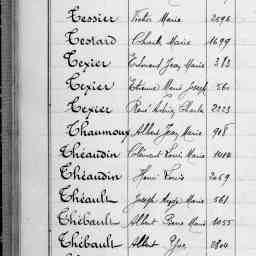 Tessier Victor Marie 2596
Testard Charles Marie 1699
Texier Edmond Jean Marie 313
Texier Etienne Marie Joseph 560
Texier René Charles 2223
Thaumoux Albert Jean Marie 908
Théaudin Clément Louis Marie
Théaudin Henri Louis 2059
Théault Joseph Marie 561
Thébault Albert Pierre Marie 1055
Thébault Albert 2804